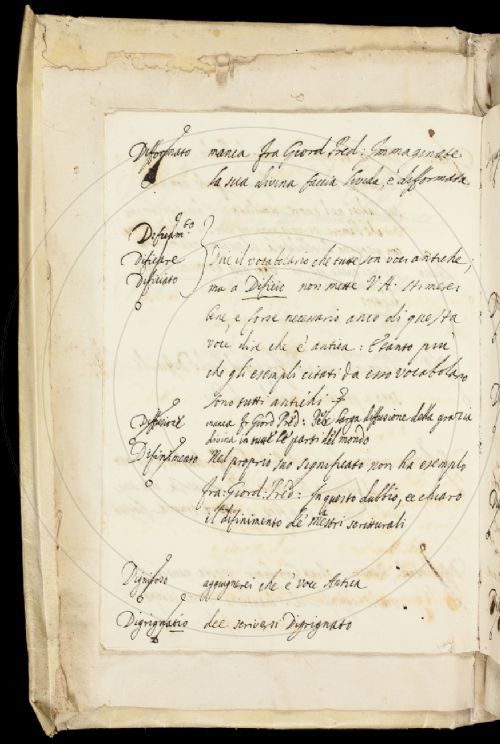 Difformato manca fra Giord. Pred: Immaginate
la sua divina faccia livida, e difformata
Dificiam.to
Dificiare Dice il vocabolario che tutte son voci antiche;
Dificiato ma a Dificio non mette V.A. stimerei
bene, e forse necessario anco di questa
voce dire che è antica: e tanto più
che gli esempli citati da esso vocabolario
sono tutti antichi
manca fr Giord Pred: Per larga diffusione della grazia
divina in tutte le parti del mondo
Difinimento Nel proprio suo significato non ha esemplo
fra Giord: Pred: In questo dubbio, ee chiaro
il difinimento de' Maestri scritturali
aggiugnerei che è voce Antica
Digrignatio dee scriversi Digrignato